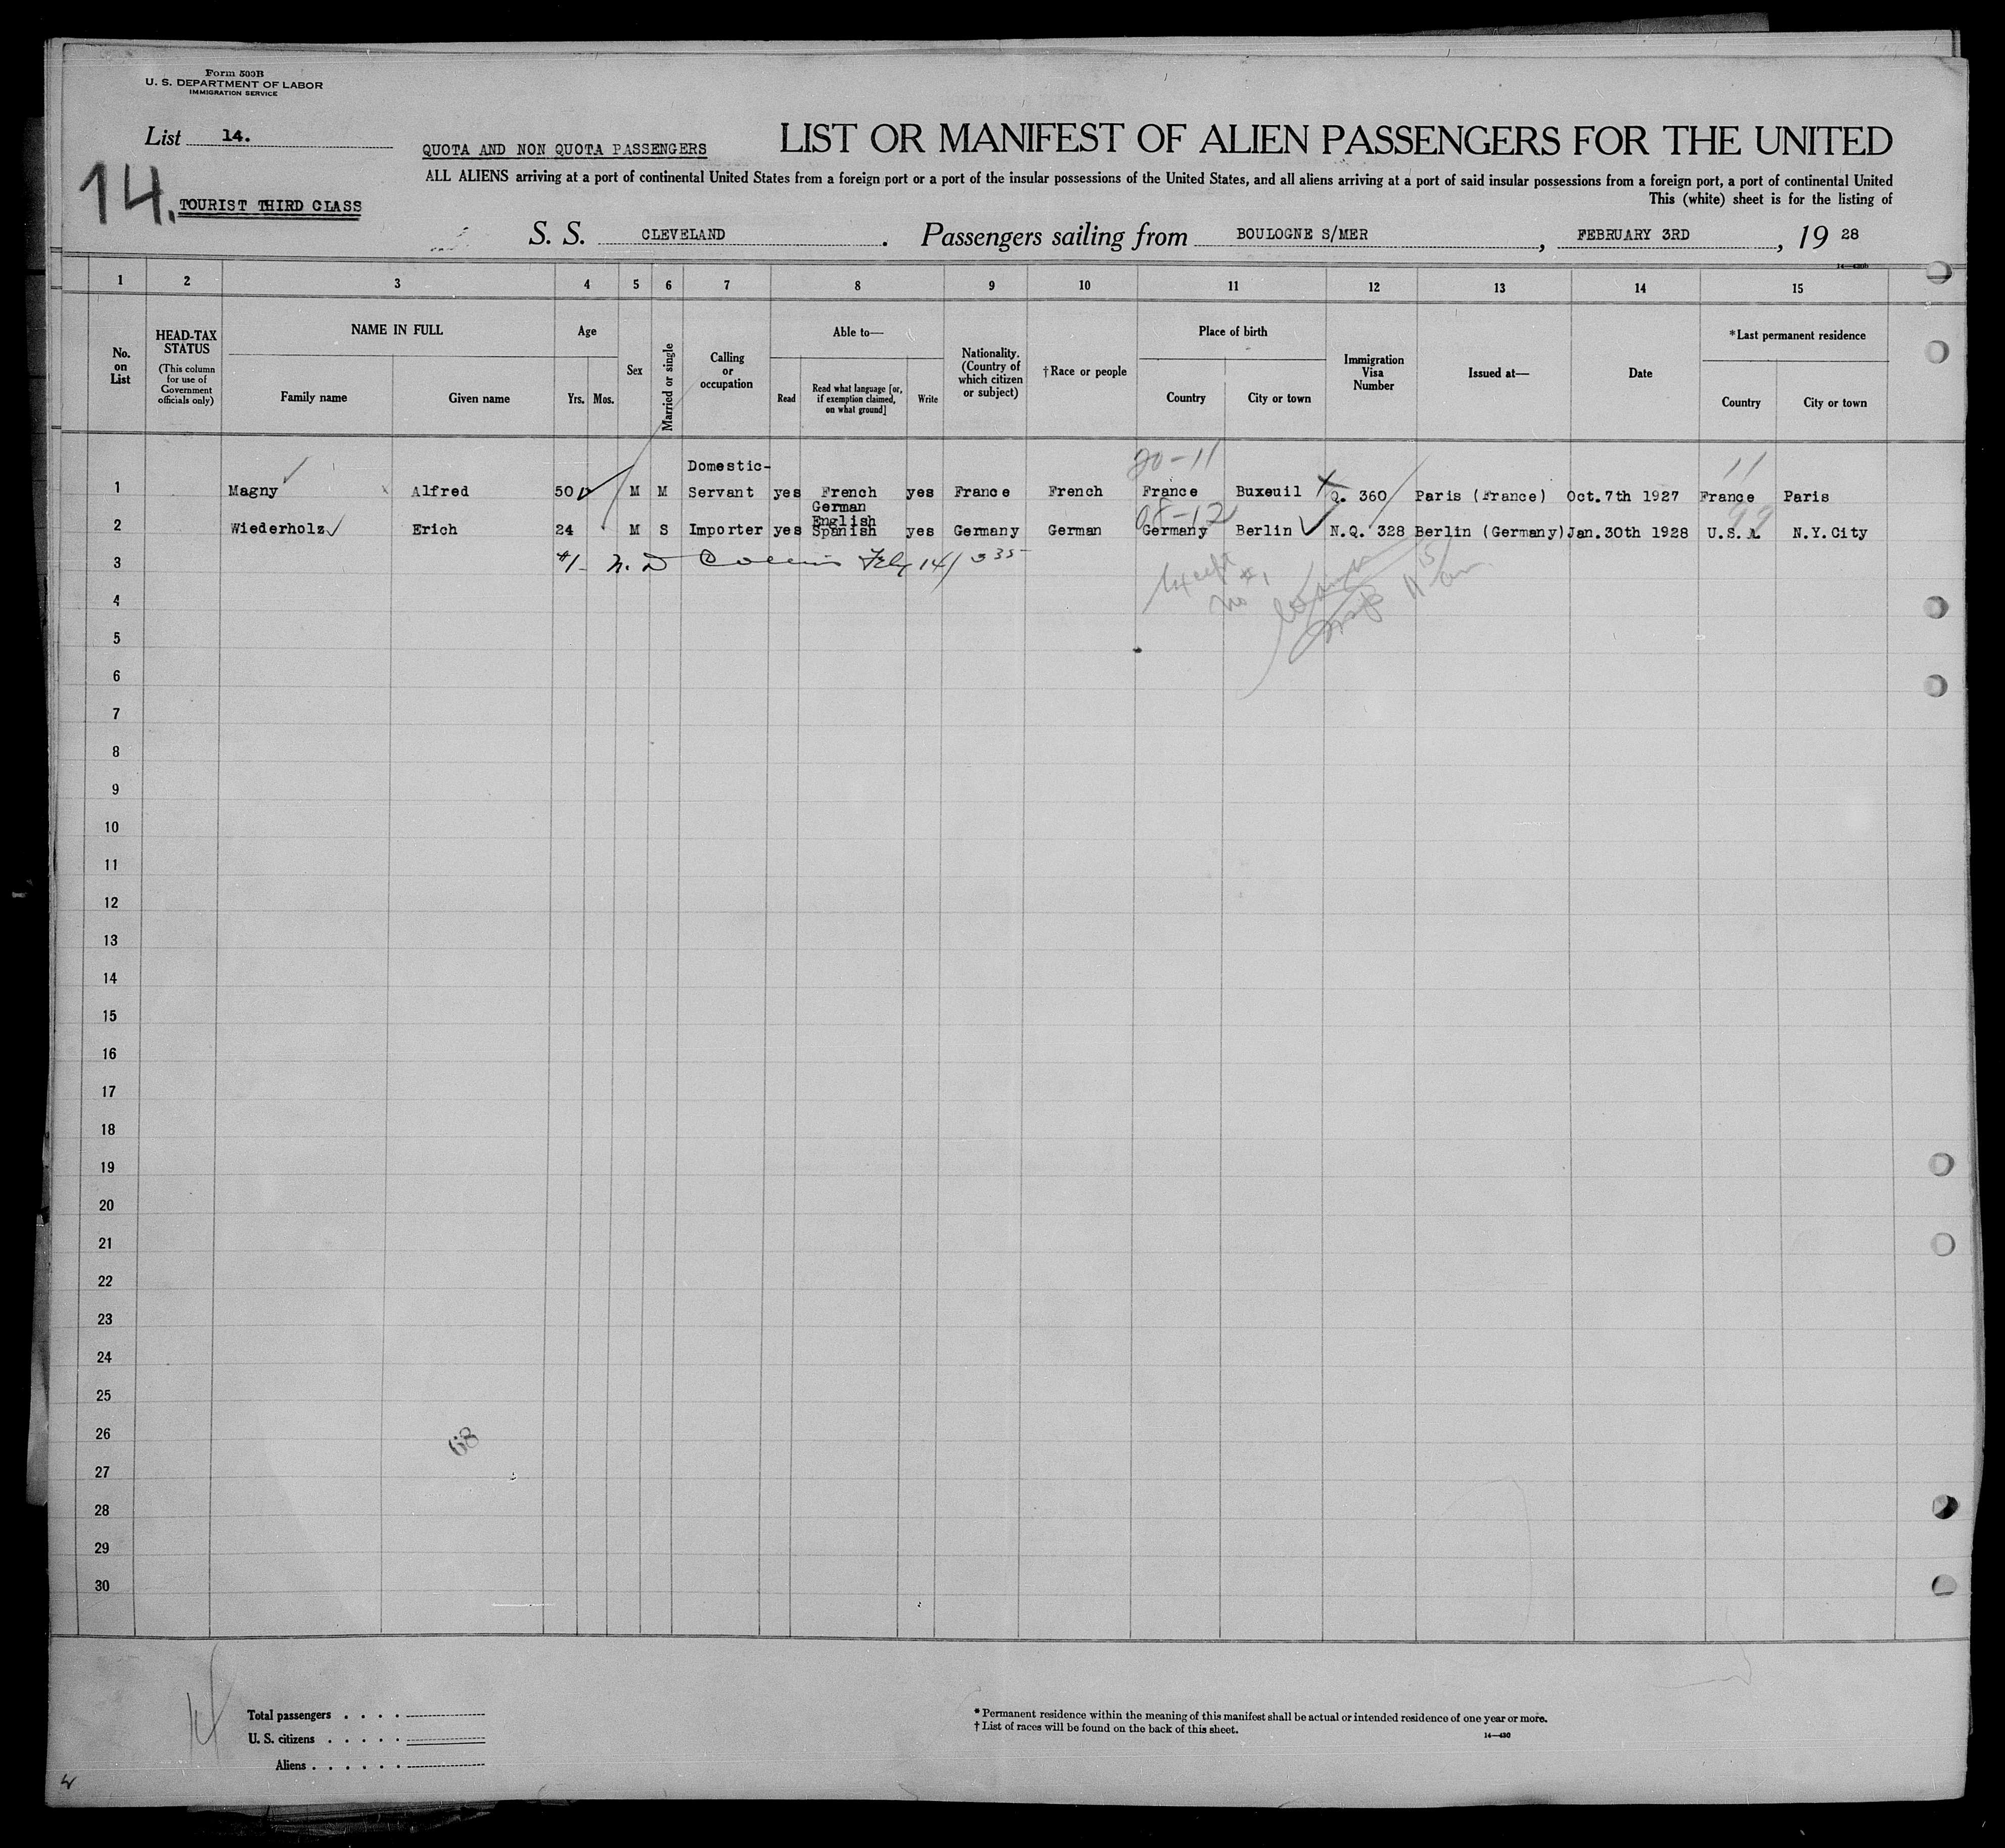 Form 500B
U. S. DEPARTMENT OF LABOR
IMMIGRATION SERVICE
List 14.
14.
QUOTA AND NON QUOTA PASSENGERS
TOURIST THIRD CLASS
LIST OR MANIFEST OF ALIEN PASSENGERS FOR THE UNITED
ALL ALIENS arriving at a port of continental United States from a foreign port or a port of the insular possessions of the United States, and all aliens arriving at a port of said insular possessions from a foreign port, a port of continental United
This (white) sheet is for the listing of
S. S. CLEVELAND. Passengers sailing from BOULOGNE S/MER, FEBRUARY 3RD, 19 28
1 2 3 4 5 6 7 8 9 10 11 12 13 14 15
No. on List
HEAD-TAX STATUS
(This column for use of Government officials only)
NAME IN FULL
Family name Given name
Age
Yrs. Mos.
Sex
Married or single
Calling or occupation
Able to—
Read
Read what language [or, if exemption claimed, on what ground]
Write
Nationality. (Country of which citizen or subject)
†Race or people
Place of birth
Country City or town
Immigration Visa Number
Issued at—
Date
*Last permanent residence
Country City or town
20-11 11
1 Magny Alfred 50 M M Domestic-Servant yes French yes France French France Buxeuil Q. 360 Paris (France) Oct.7th 1927 France Paris
08-12 99
2 Wiederholz Erich 24 M S Importer yes German English Spanish yes Germany German Germany Berlin N.Q. 328 Berlin (Germany) Jan.30th 1928 U.S.A. N.Y.City
3 #1- N. D Feby 14/
4
5
6
7
8
9
10
11
12
13
14
15
16
17
18
19
20
21
22
23
24
25
26
68
27
28
29
30
Total passengers
U. S. citizens
Aliens
* Permanent residence within the meaning of this manifest shall be actual or intended residence of one year or more.
† List of races will be found on the back of this sheet.
14—430